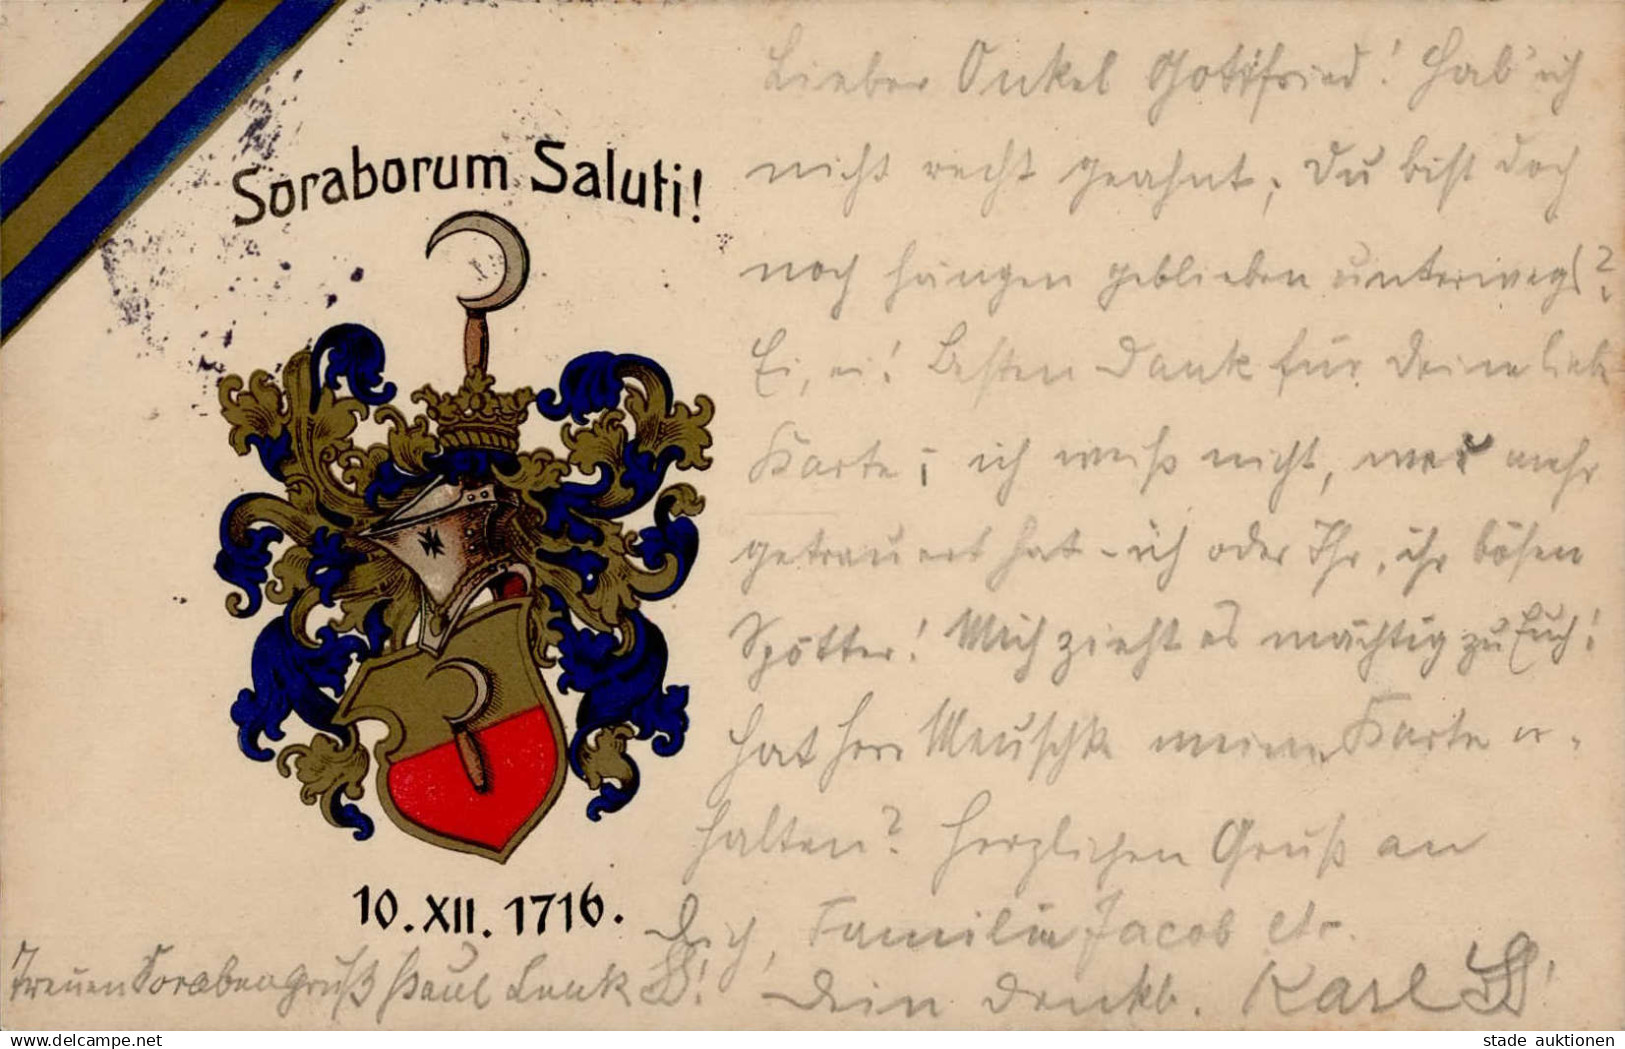 Soraborum Saluti!
10. XII. 1716.
Lieber Onkel Gottfried! Hab' ich
nicht recht geahnt, Du bist doch
noch hängen geblieben unterwegs?
Ei, ei! Besten Dank für Deine liebe
Karte; ich weiß nicht, wer mehr
getrauert hat – ich oder Ihr, ihr bösen
Spötter! Mich zieht es mächtig zu Euch!
Hat Herr Meuschke meine Karte er-
halten? Herzlichen Gruß an
Dich, Familie Jacob etc.
Dein dankb. Karl
Treuen Sorabengruß Paul Lenk
www.delcampe.net
stade auktionen